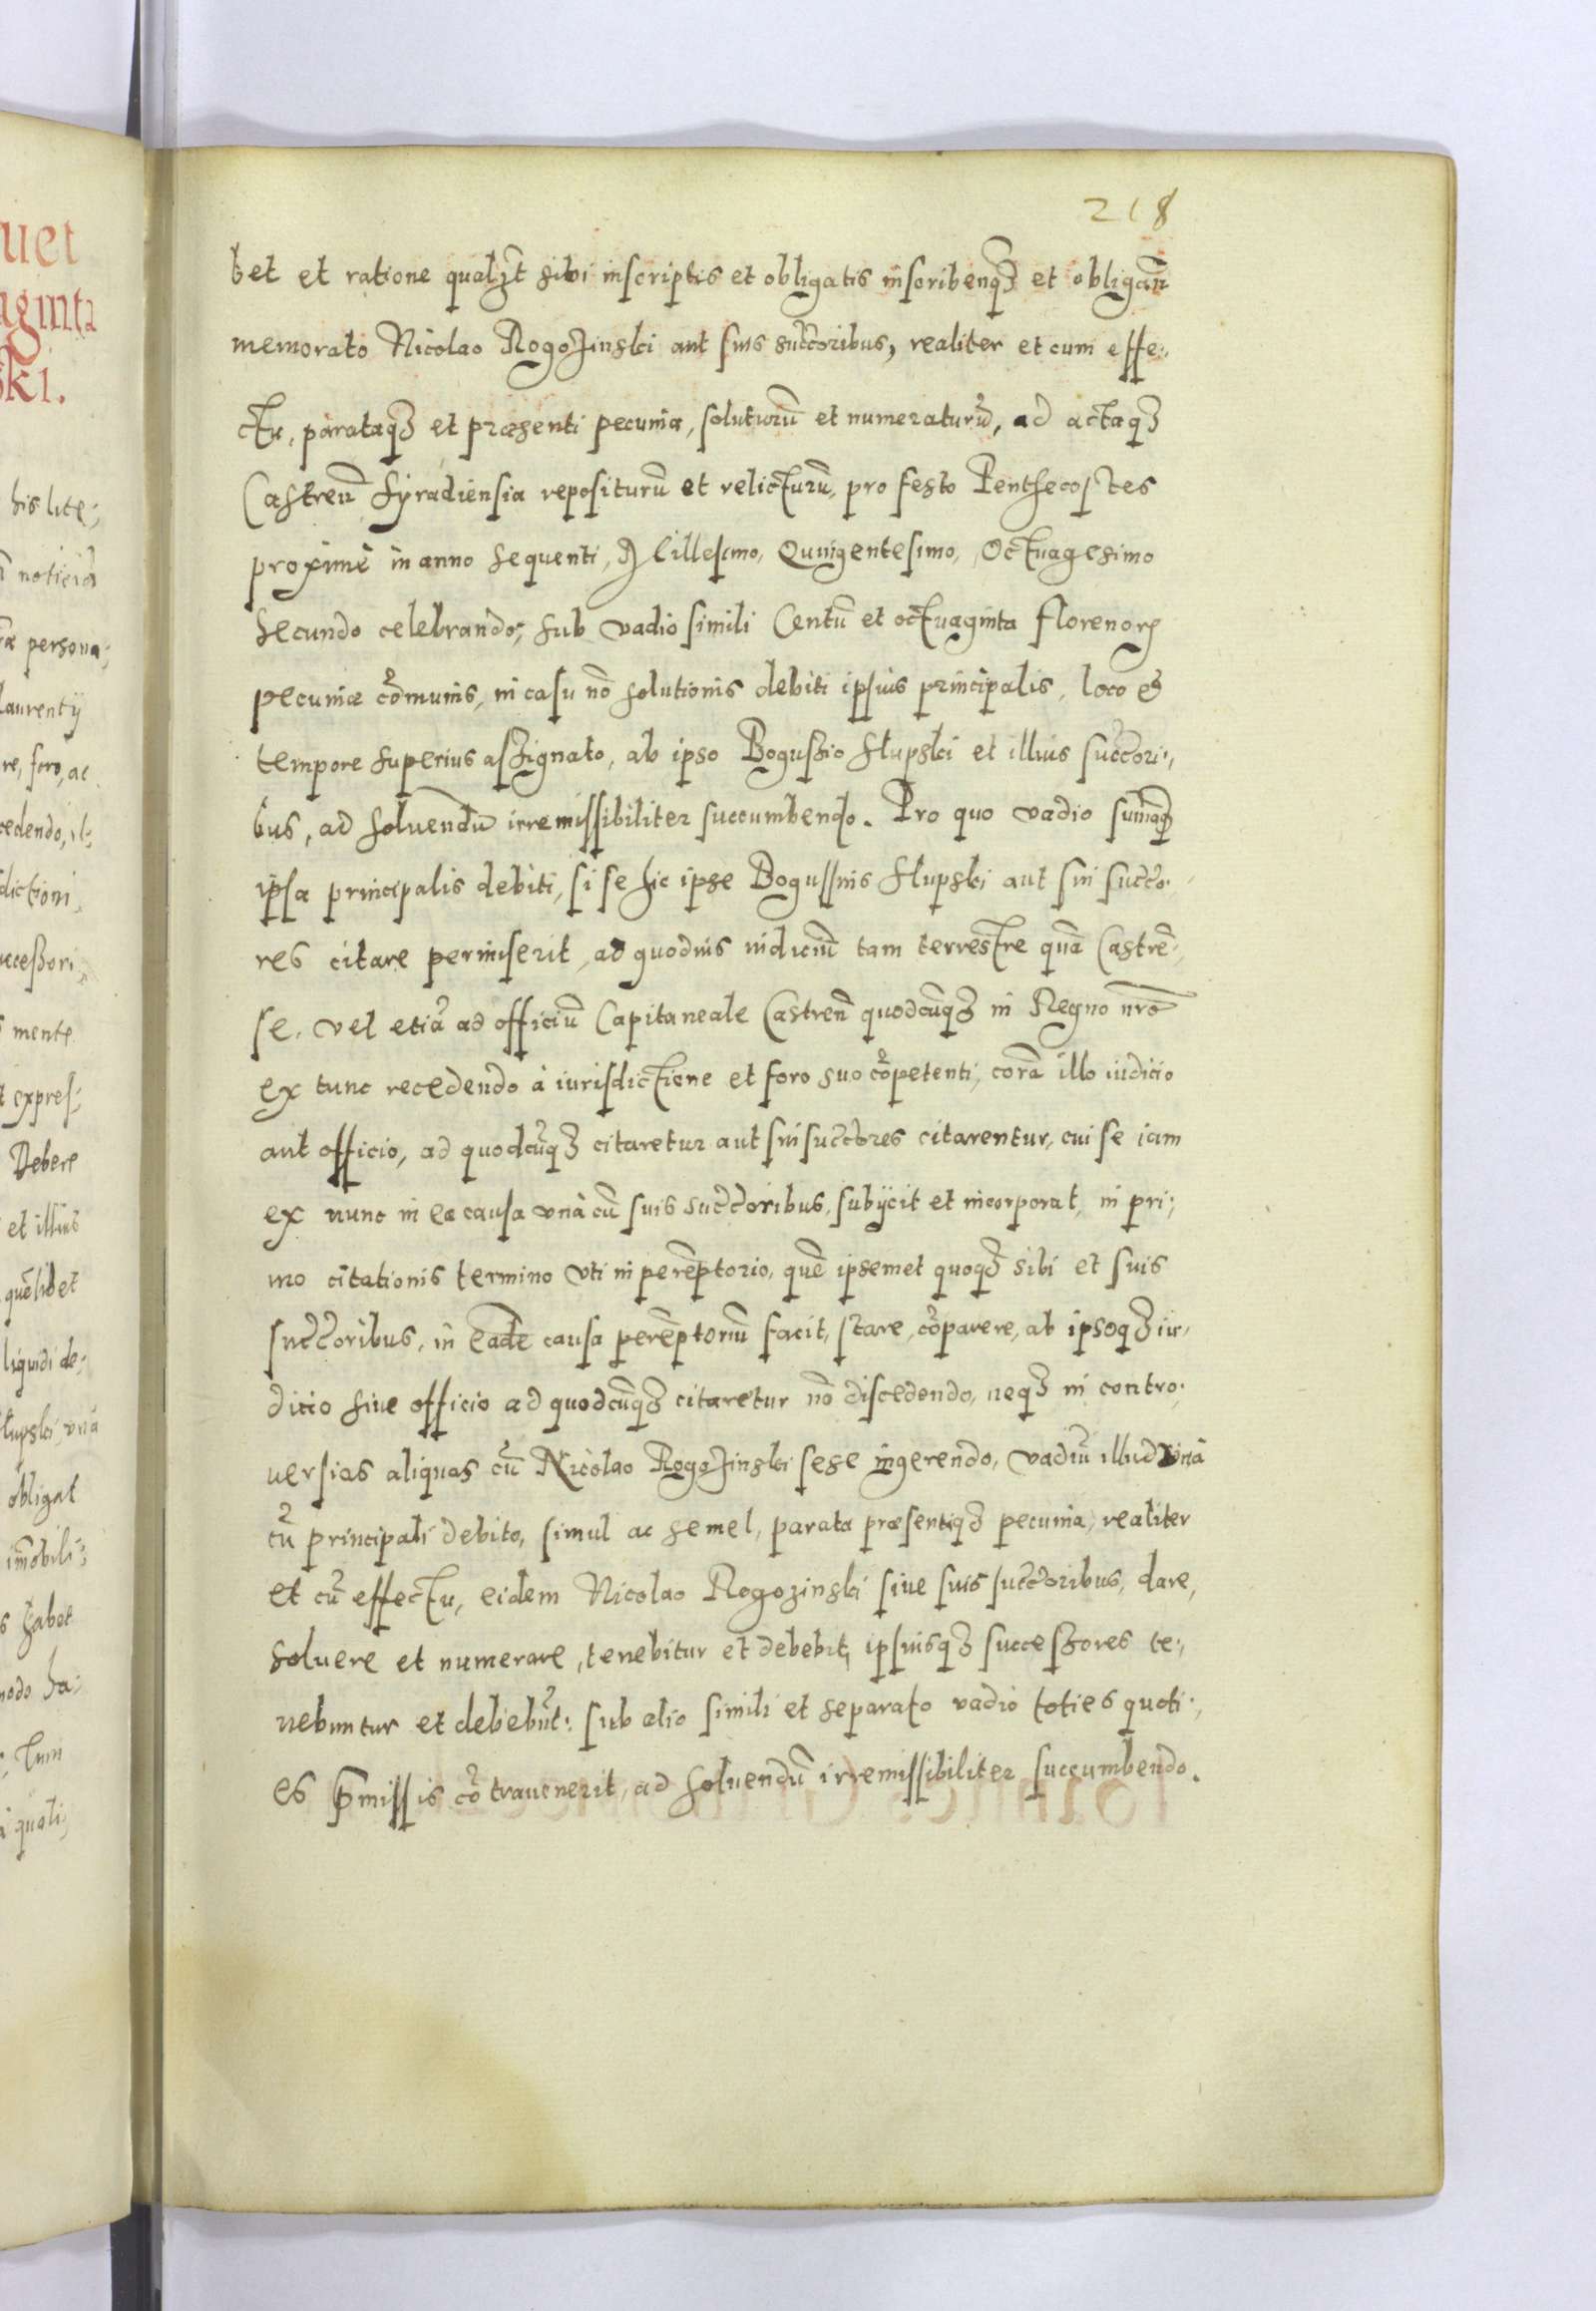 218
bet et ratione qualꝫt sibi inscriptis et obligatis inscribenqꝫ et obligan̄
memorato Nicolao Rogozinski aut suis succ̄oribus, realiter et cum effe:
ctu, parataqꝫ et præsenti pecunia, soluturū et numeraturū, ad actaqꝫ
Castren̄ Syradiensia repositurū et relicturū, pro festo Penthecostes
proximè in anno sequenti, Millesimo, Quingentesimo, Octuagesimo
secundo celebrando, sub vadio simili Centū et octuaginta florenorꝭ
pecuniæ cōmunis, in casu nō solutionis debiti ipsius principalis, loco et
tempore superius assignato, ab ipso Bogussio Slupski et illius succ̄ori:
bus, ad soluendū irremissibiliter succumbendo. Pro quo vadio sum̄aqꝫ
ipsa principalis debiti, si se hic ipse Bogussius Slupski aut sui succ̄o:
res citare permiserit, ad quoduis iudiciū tam terrestre quā Castrē:
se, vel etiā ad officiū Capitaneale Castren̄ quodcūqꝫ in Regno nr̄o
ex tunc recedendo à iurisdictione et foro suo cōpetenti, corā illo iudicio
aut officio, ad quodcūqꝫ citaretur aut sui succ̄ores citarentur, cui se iam
ex nunc in ea causa vnà cū suis succ̄oribus, subijcit et incorporat, in pri:
mo citationis termino vti in perēptorio, quē ipsemet quoqꝫ sibi et suis
succ̄oribus, in eadē causa perēptoriū facit, stare, cōparere, ab ipsoqꝫ iu:
dicio siue officio ad quodcūqꝫ citaretur nō discedendo, neqꝫ in contro:
uersias aliquas cū Nicolao Rogozinski sese ingerendo, vadiū illud vnà
cū principali debito, simul ac semel, parata præsentiqꝫ pecunia, realiter
et cū effectu, eidem Nicolao Rogozinski siue suis succ̄oribus, dare,
soluere et numerare, tenebitur et debebit, ipsiusqꝫ successores te:
nebuntur et debebūt: sub alio simili et separato vadio toties quoti:
es p̄missis cōtrauenerit, ad soluendū irremissibiliter succumbendo.